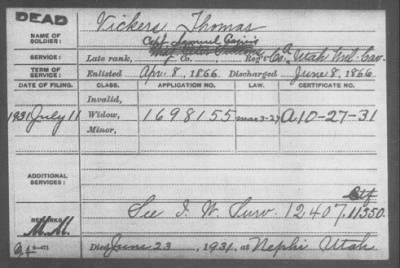 DEAD
NAME OF SOLDIER: Vickers Thomas
Capt. Samuel
SERVICE: Late rank, Co. Reg't Co. A Utah Mil. Cav.
TERM OF SERVICE: Enlisted Apr. 8, 1866. Discharged June 8, 1866.
DATE OF FILING. CLASS. APPLICATION NO. LAW. CERTIFICATE NO.
Invalid,
1931 July 11 Widow, 1698155 Mar 3-27 A10-27-31
Minor,
ADDITIONAL SERVICES:
Ctf
See I. W. Surv. 12407. 11350.
REMARKS:
Died June 23, 1931, at Nephi Utah